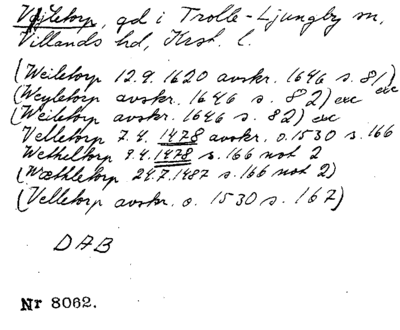 Vejletorp, gd i Trolle-Ljungby sn,
Villands hd, Krst. l.
(Weiletorp 12.9.1620 avskr. 1646 s. 81)
(Weyletorp avskr. 1646 s. 82) exc exc
(Weiletorp avskr. 1646 s. 82) exc
Velletorp 7.4. 1478 avskr. o.1530 s.166
Wetheltorp 9.4.1478 s.166 not 2
(Wæthletorp 24.7.1487 s.166 not 2)
(Velletorp avskr. o. 1530 s. 167)
DAB
Nr 8062.